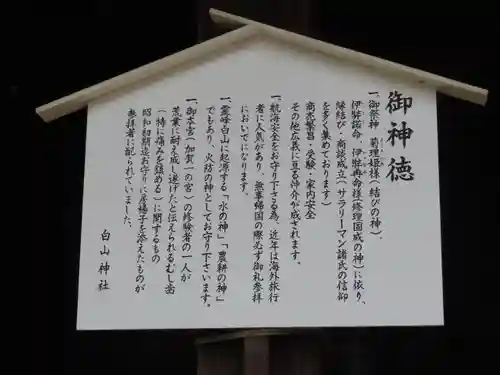 御神徳
一、御祭神 菊理姫様(結びの神)、
伊弉諾命 伊弉冉命様(修理固成の神)に依り、
縁結び・商談成立(サラリーマン諸氏の信仰
を多く集めております)
商売繁昌・受験・家内安全
その他広義に亘る仲介が成されます。
一、航海安全をお守り下さる為、近年は海外旅行
者に人気があり、無事帰国の際必ず御礼参拝
においでになります。
一、霊峰白山に起源する「水の神」「農耕の神」
でもあり、火防の神としてお守り下さいます。
一、御本宮(加賀一の宮)の修験者の一人が
荒業に耐え成し遂げたと伝えられるむし歯
(特に痛みを鎮める)に関するもの
昭和初期迄お守りに房楊子を添えたものが
参拝者に配られていました。
白山神社